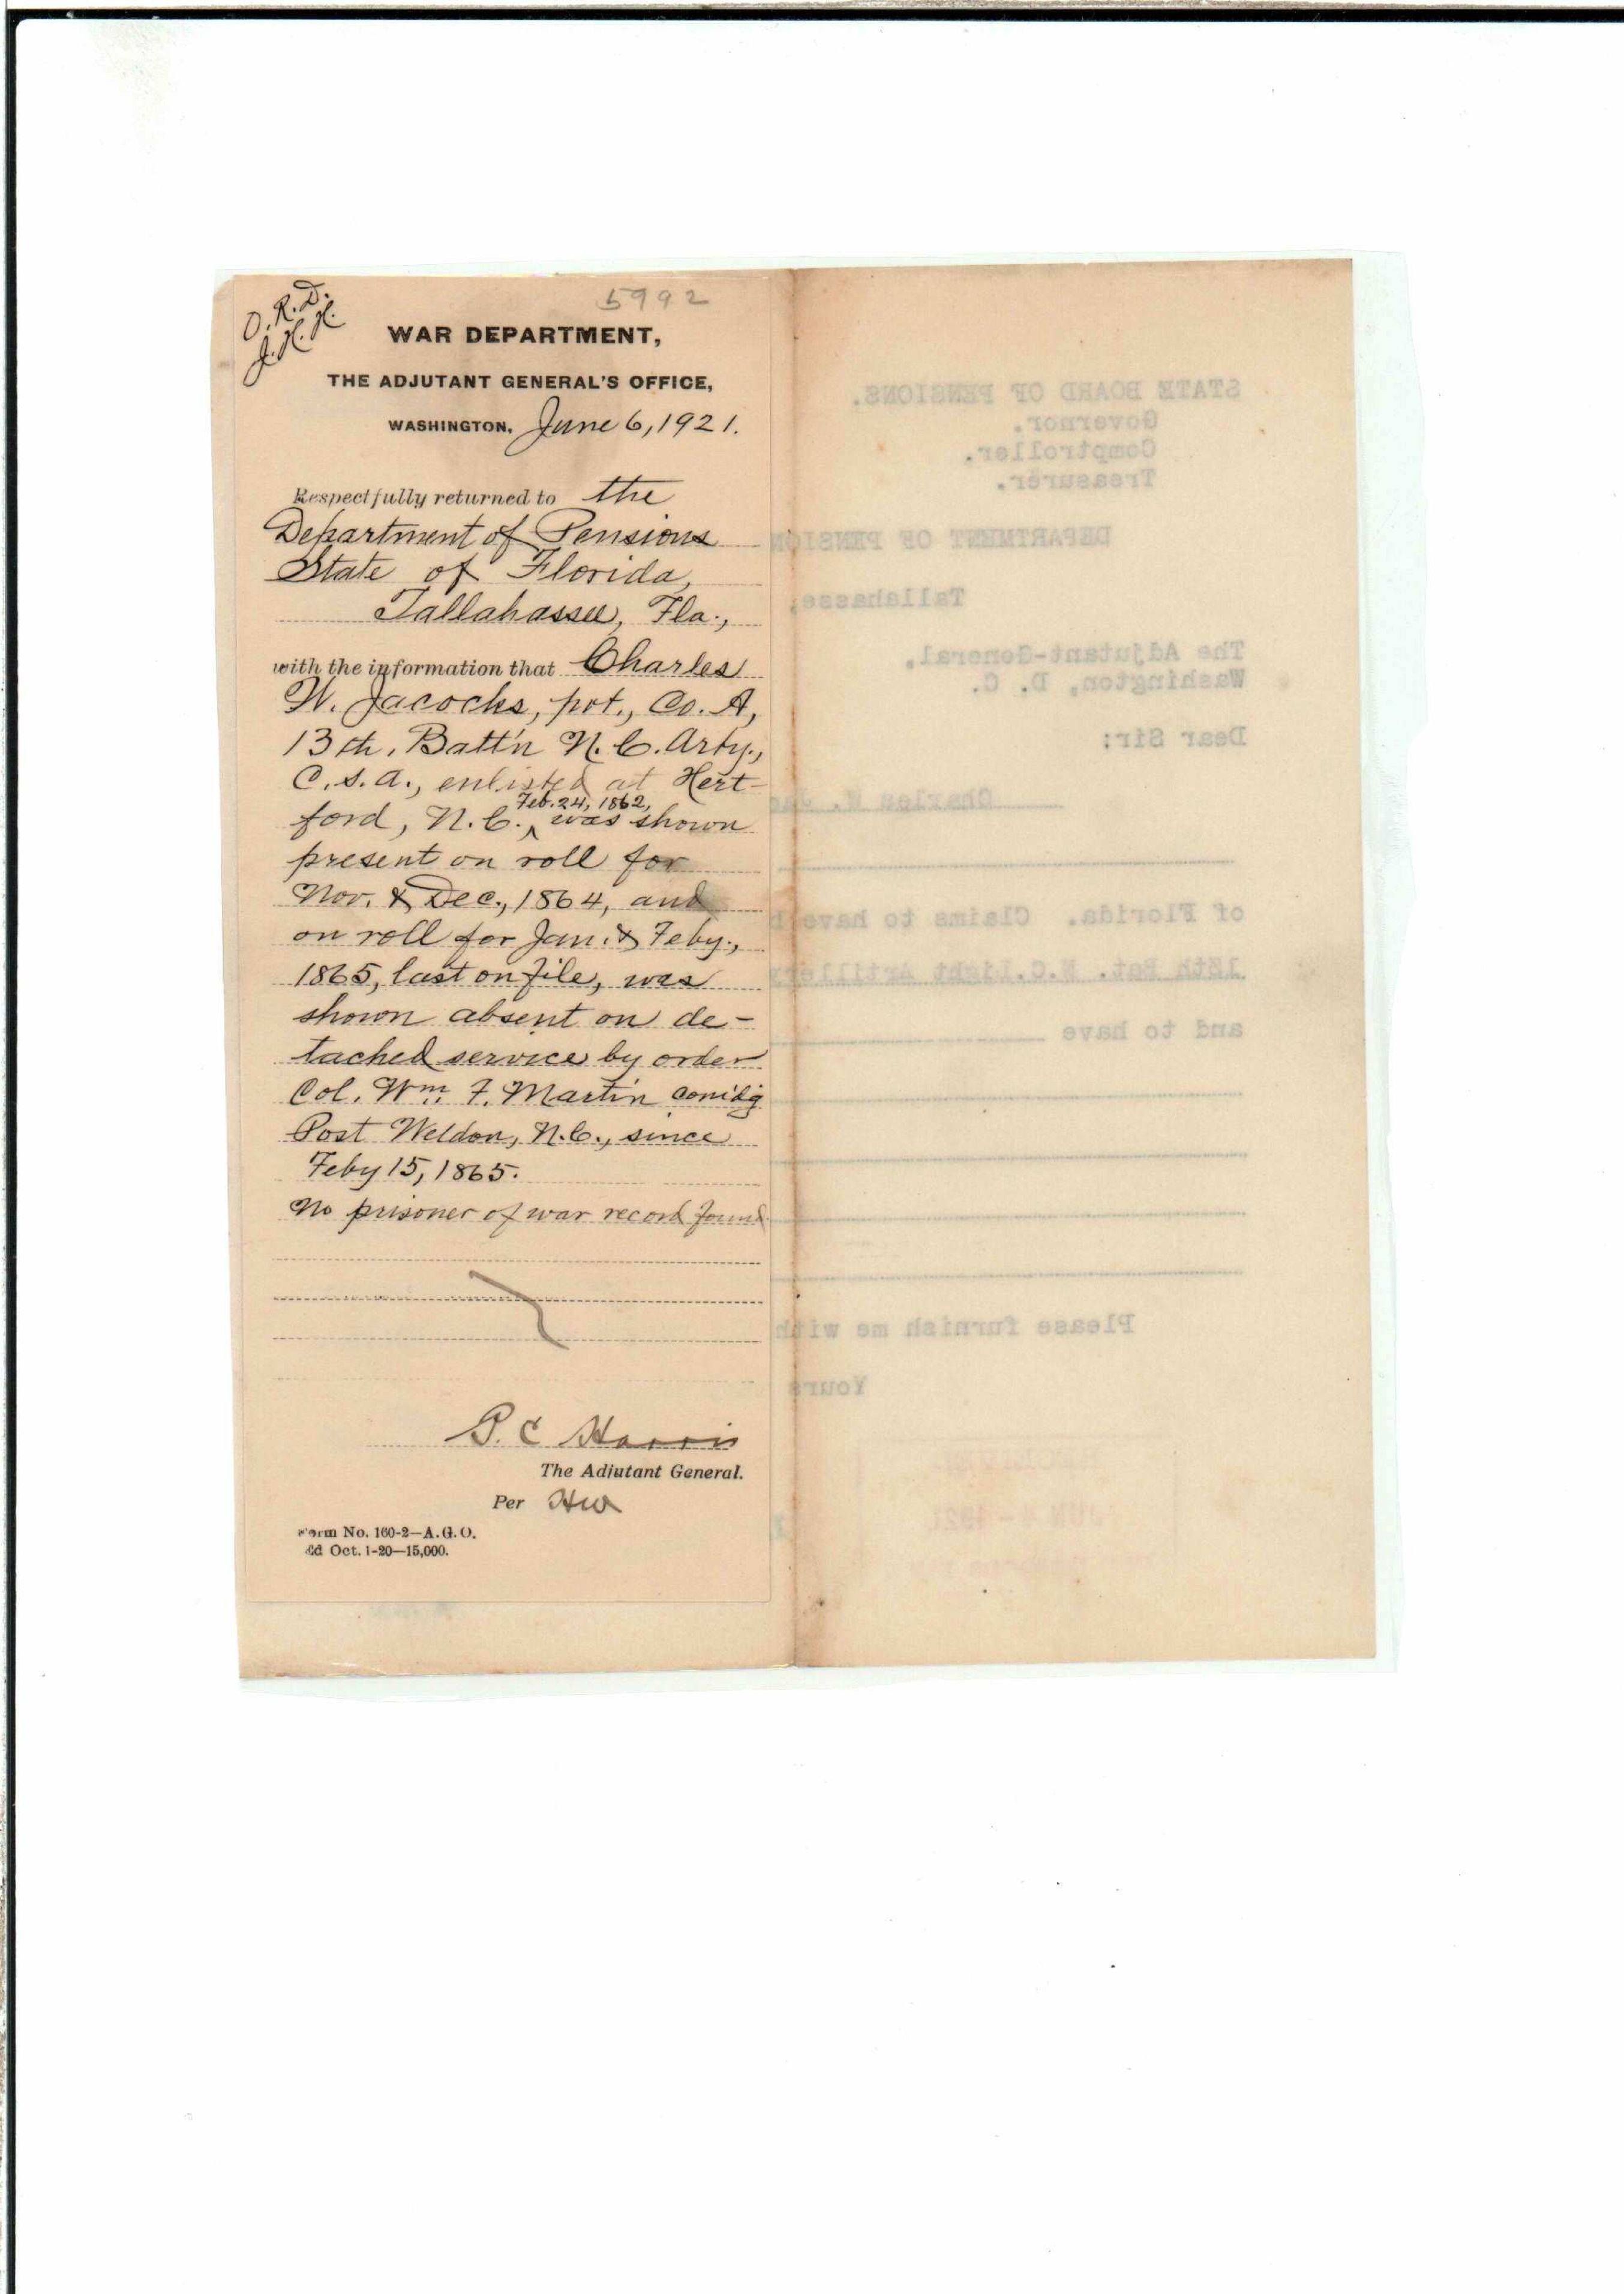 5992
O.R.D.
J.H.H.
WAR DEPARTMENT,
THE ADJUTANT GENERAL'S OFFICE,
WASHINGTON, June 6, 1921.
Respectfully returned to the
Department of Pensions
State of Florida,
Tallahassee, Fla.,
with the information that Charles
W. Jacocks, pvt., Co. A,
13th. Batt'n N.C. Arty.,
C.S.A., enlisted at Hert-
Feb. 24, 1862,
ford, N.C., ^ was shown
present on roll for
Nov. & Dec., 1864, and
on roll for Jan. & Feby.,
1865, last on file, was
shown absent on de-
tached service by order
Col. Wm. F. Martin com'dg
Post Weldon, N.C., since
Feby 15, 1865.
No prisoner of war record found
P. C Harris
The Adjutant General.
Per
Form No. 160-2—A.G.O.
Ed Oct. 1-20—15,000.
STATE BOARD OF PENSIONS.
Governor.
Comptroller.
Treasurer.
DEPARTMENT OF PENSION
Tallahassee,
The Adjutant-General,
Washington, D. C.
Dear Sir:
Charles W.
of Florida. Claims to have
Bat. N.C.Light Artillery
and to have
Please furnish me with
Yours
1921